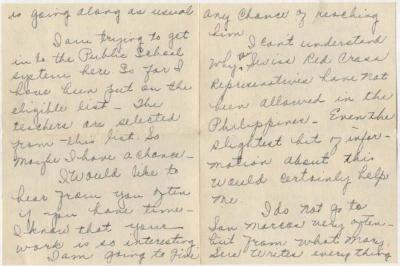 is going along as usual
I am trying to get
in to the Public School
system here So far I
have been put on the
eligible list - The
teachers are selected
from this list. So
maybe I have a chance -
I would like to
hear from you often
if you have time -
I know that your
work is so interesting.
I am going to give
any chance of reaching
him
I can't understand
why the Swiss Red Cross
Representatives have not
been allowed in the
Philippines - Even the
slightest bit of infor-
mation about this
would certainly help
me
I do not go to
San Marcos very often -
but from what Mary
writes everything